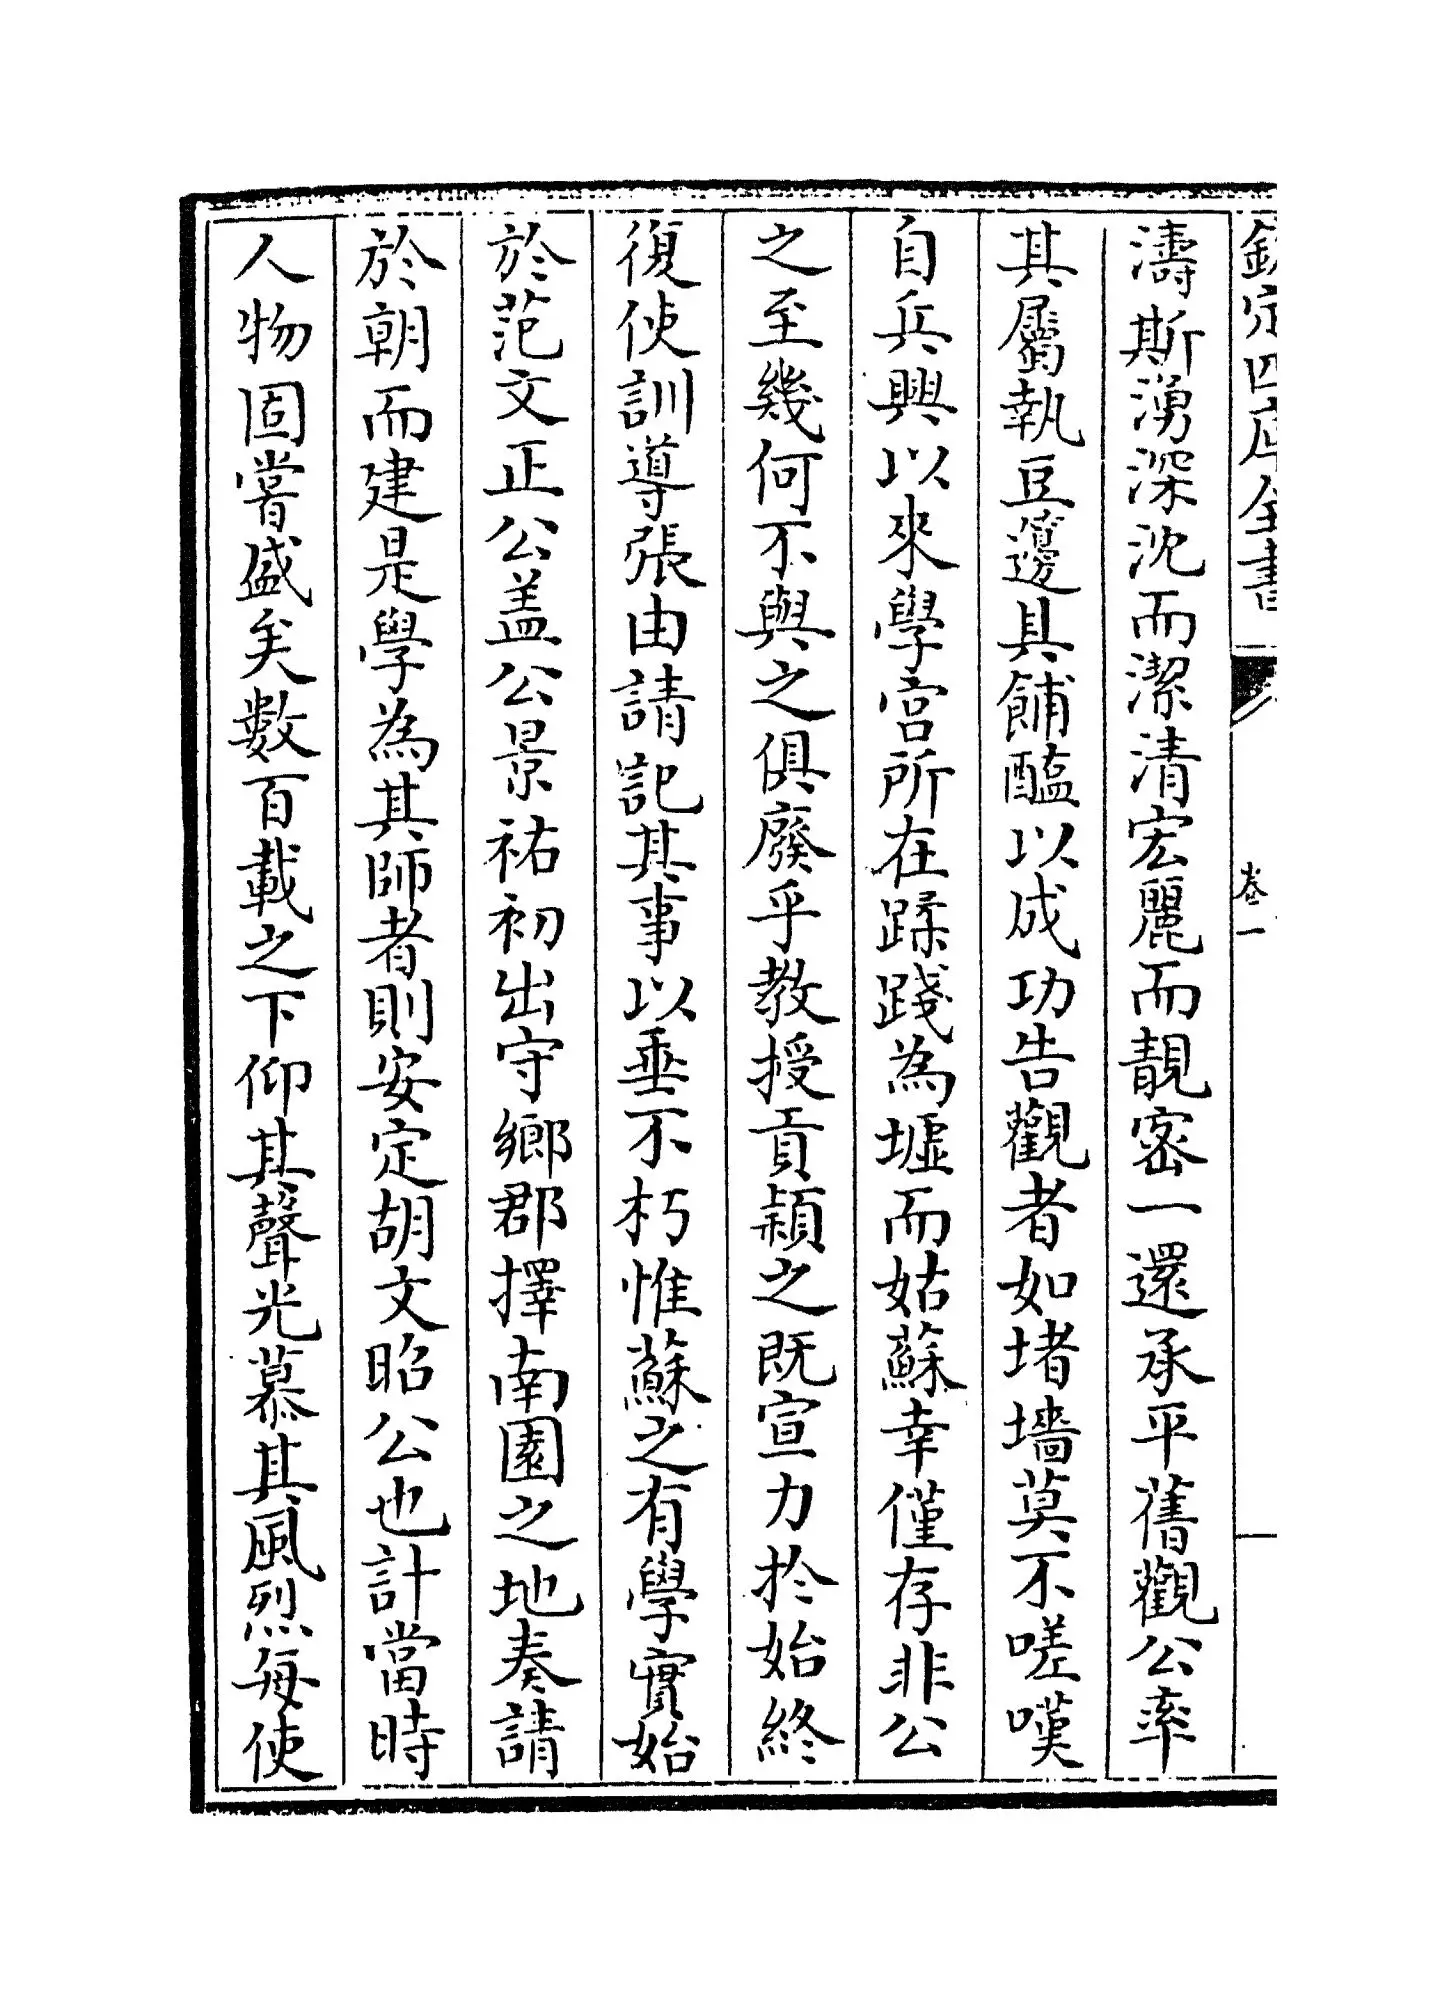 欽定四庫全書
卷一
濤斯湧深沈而潔清宏麗而靚密一還承平舊觀公率
其屬執豆籩具餔醢以成功告觀者如堵墻莫不嗟嘆
自兵興以來學宮所在蹂踐為墟而姑蘇幸僅存非公
之至幾何不與之俱廢乎教授貢穎之既宣力於始終
復使訓導張由請記其事以垂不朽惟蘇之有學實始
於范文正公盖公景祐初出守鄉郡擇南園之地奏請
於朝而建是學為其師者則安定胡文昭公也計當時
人物固嘗盛矣數百載之下仰其聲光慕其風烈每使